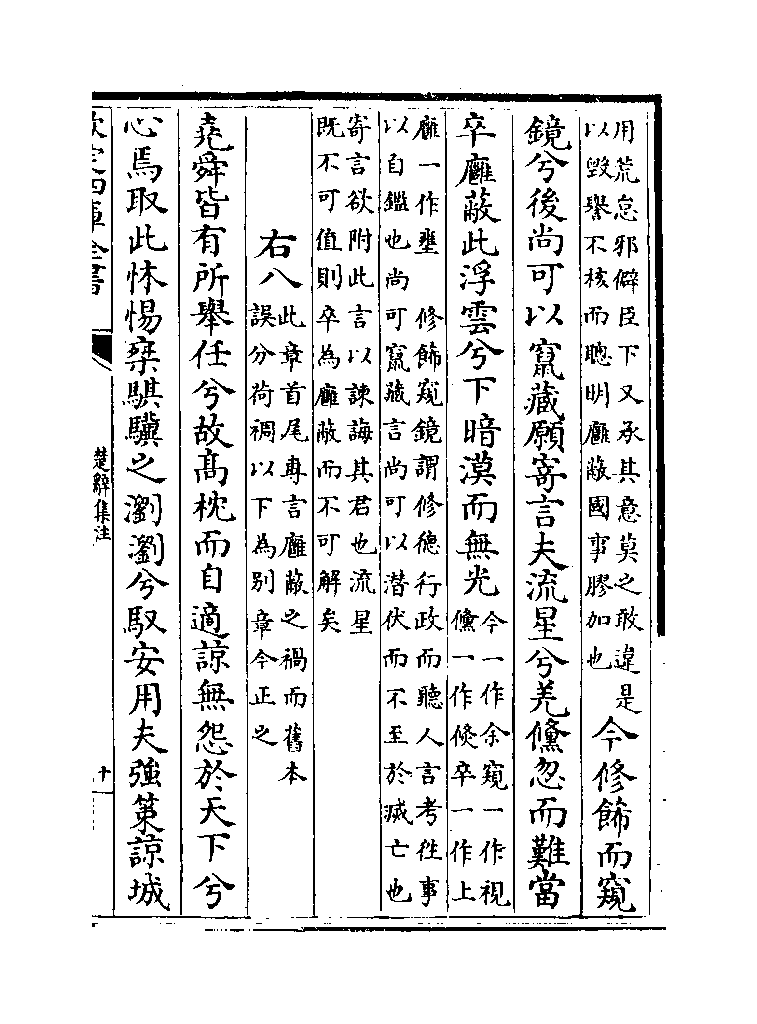 用荒怠邪僻臣下又承其意莫之敢違是
以毀譽不核而聰明廱蔽國事膠加也
今修飾而窺
鏡兮後尚可以竄藏願寄言夫流星兮羌儵忽而難當
卒廱蔽此浮雲兮下暗漠而無光
今一作余窺一作視
儵一作倐卒一作上
廱一作壅　修飾窺鏡謂修德行政而聽人言考徃事
以自鑑也尚可竄藏言尚可以潜伏而不至於滅亡也
寄言欲附此言以諫誨其君也流星
既不可值則卒為廱蔽而不可解矣
右八
此章首尾専言廱蔽之禍而舊本
誤分荷裯以下為别章今正之
堯舜皆有所舉任兮故髙枕而自適諒無怨於天下兮
心焉取此怵惕椉騏驥之瀏瀏兮馭安用夫強策諒城
欽定四庫全書
楚辭集注
十